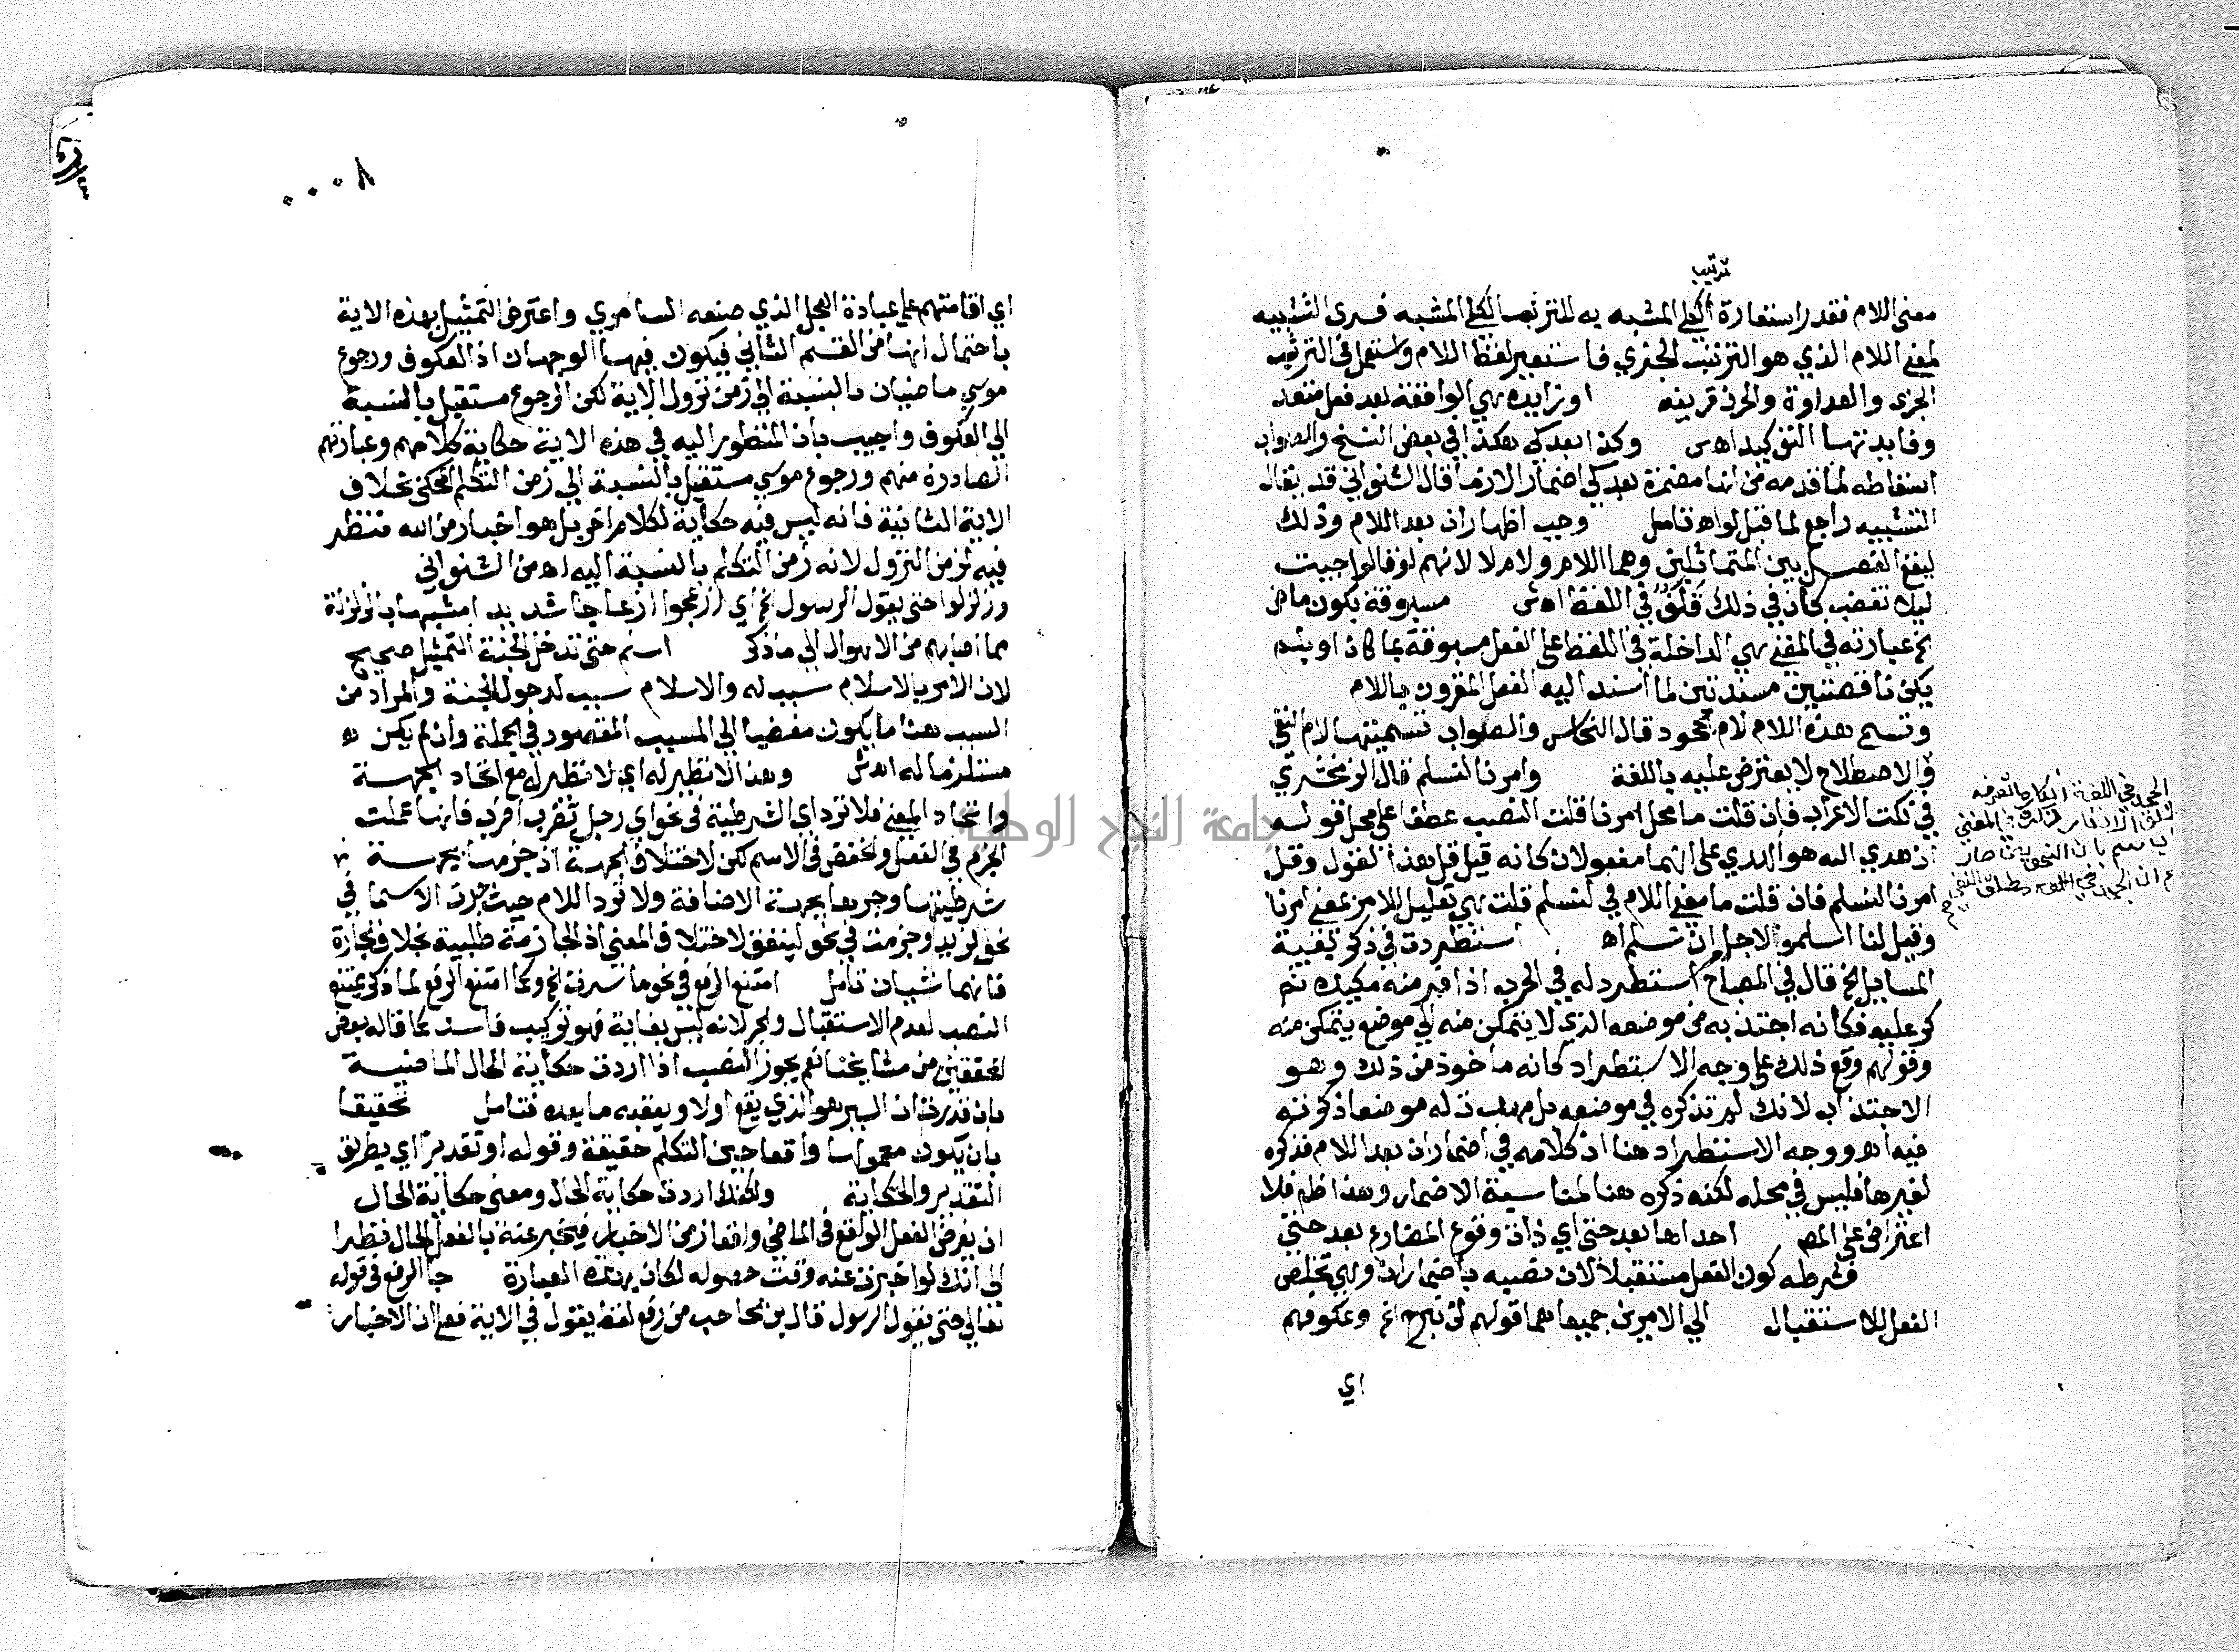 ترتيبا
معنى اللام فقد راستعارة الكلي المشبه به للترتب الكلي المشبه فسرى التشبيه
لمعنى اللام الذي هو الترتيب الجزئ فاستعير لفظ اللام واستعمل في الترتيب
الجزى والعداوة والحزن قرينه او زايده هي الواقعة بعد فعل متعد
وفايدتها التوكيد اهش وكذا بعد كي هكذا في بعض النسخ والصواب
اسقاطه لما قدمه من انها مضمرة بعد كي اضمارا لازما قال الشنواني قد يقال
التشبيه راجع لما قبل لو اه تامل وجب اظهار ان بعد اللام وذلك
ليقع الفصل بين المتماثلين وهما اللام ولام لا لانهم لو قالوا جيت
ليلا تغضب كان في ذلك قلق في اللفظ اهش مسبوقة بكون ماض
الخ عبارته في المغني هي الداخلة في اللفظ على الفعل مسبوقة بما كان او بلم
يكن ناقصتين مسندتين لما اسند اليه الفعل المقرون باللام
وتسمى هذه اللام لام الجحود قال النحاس والصواب تسميتها لام النفي
والاصطلاح لا يعترض عليه باللغة وامرنا لنسلم قال الزمخشري
في نكت الاعراب فان قلت ما محل امرنا قلت النصب عطفا على محل قوله
ان هدي الله هو الهدي على انهما مفعولان كانه قيل قل هذا القول وقل
امرنا لنسلم فان قلت ما معنى اللام في لنسلم قلت هي تعليل للامر بمعنى امرنا
وقيل لنا اسلموا لاجل ان نسلم اه استطردت في ذكر بقية
المسايل الخ قال في المصباح استطرد له في الحرب اذا فر منه مكيدة ثم
كر عليه فكانه اجتذبه من موضعه الذي لا يتمكن منه الي موضع يتمكن منه
وقولهم وقع ذلك على وجه الاستطراد كانه ماخوذ من ذلك وهو
الاجتذاب لانك لم تذكره في موضعه بل مهدت له موضعا ذكرته
فيه اه ووجه الاستطراد هنا ان كلامه في اضمار ان بعد اللام فذكره
لغيرها فليس في محله لكنه ذكره هنا لمناسبة الاضمار وهذا ظلم فلا
اعتراض على المص احداها بعد حتى اي ذان وقوع المضارع بعد حتى
فشرطه كون الفعل مستقبلا لان نصبه باضمار ان وهي تخلص
الفعل للاستقبال الي الامرين جميعا هما قولهم لن نبرح الخ وعكوفهم
اي
الجحد في اللغة انكار ما تعرفه
لا مطلق الانكار
٨٠٠٠
اي اقامتهم على عبادة العجل الذي صنعه السامري واعترض التمثيل بهذه الاية
باحتمال انها من القسم الثاني فيكون فيها الوجهان اذ العكوف ورجوع
موسى ماضيان بالنسبة الي زمن نزول الاية لكن الرجوع مستقبل بالنسبة
الي العكوف واجيب بان المنظور اليه في هذه الاية حكاية كلامهم وعبارتهم
الصادرة منهم ورجوع موسي مستقبل بالنسبة الي زمن التكلم المحكي بخلاف
الاية الثانية فانه ليس فيه حكاية لكلام اخر بل هو اخبار من الله فنظر
فيه لزمن النزول لانه زمن التكلم بالنسبة اليه اه من الشنواني
وزلزلوا حتى يقول الرسول الخ اي ازعجوا ازعاجا شديدا مشبها بالزلزلة
مما اصابهم من الاهوال الي ما ذكر اسلم حتى تدخل الجنة التمثيل صحيح
لان الامر بالاسلام سبب له والاسلام سبب لدخول الجنة والمراد من
السبب هنا ما يكون مفضيا الي المسبب المقصود في الجملة وان لم يكن
مستلزما له اهش وهذا لا نظير له اي لا نظير له مع اتحاد الجهة
واتحاد المعنى فلا ترد اي الشرطية في نحو اي رجل تقرب اقرب فانها عملت
الجزم في الفعل والخفض في الاسم لكن لاختلاف الجهة اذ جزمها بجهة
شرطيتها وجرها بجهة الاضافة ولا ترد اللام حيث جرت الاسما في
نحو لزيد وجزمت في نحو لينفق لاختلاف المعنى اذ الجازمة طلبية بخلاف الجارة
فانهما شيان تامل امتنع الرفع في نحو ما سرت الخ وكما امتنع الرفع لما ذكر يمتنع
النصب لعدم الاستقبال والجر لانه ليس بغاية فهو تركيب فاسد كما قاله بعض
المحققين من مشايخنا نعم يجوز النصب اذا اردت حكاية الحال الماضية
بان قدرت ان السير هو الذي يقع اولا ويعقبه ما بعده فتامل تحقيقا
بان يكون معمولها واقعا حين التكلم حقيقة وقوله او تقديرا اي بطريق
التقدير والحكاية ولكنك اردت حكاية الحال ومعنى حكاية الحال
ان يفرض الفعل الواقع في الماضي واقعا زمن الاخبار فيخبر عنه بالفعل الحال نظرا
الى انك لو اخبرت عنه وقت حصوله لكان بهذه العبارة جا الرفع في قوله
تعالي حتى يقول الرسول قال بن الحاجب من رفع لفظ يقول في الاية فعلى ان الاخبار